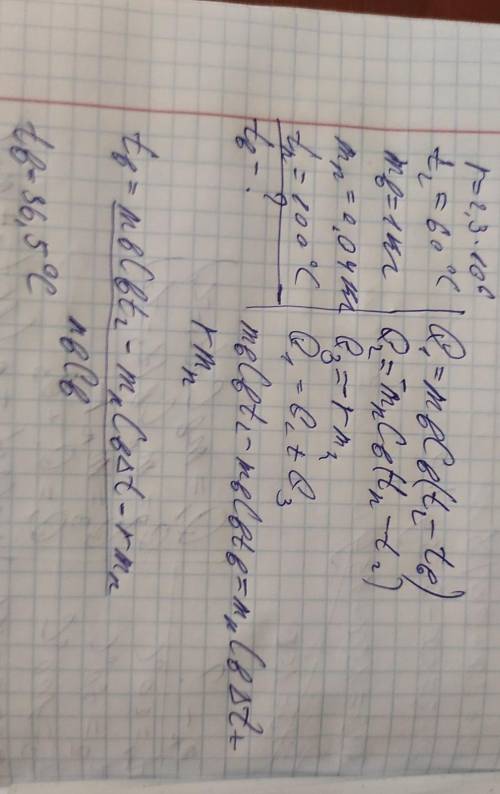 r=2,3·10⁶
t₂=60°C
mв=1кг
mп=0,04кг
tп=100°C
tв-?
Q₁=mвCв(t₂-tв)
Q₂=-mпCв(tп-t₂)
Q₃=-rmп
Q₁=Q₂+Q₃
mвCвt₂-mвCвtв=mпCвΔt+
rmп
tв=mвCвt₂-mпCвΔt-rmп
mвCв
tв=36,5°C